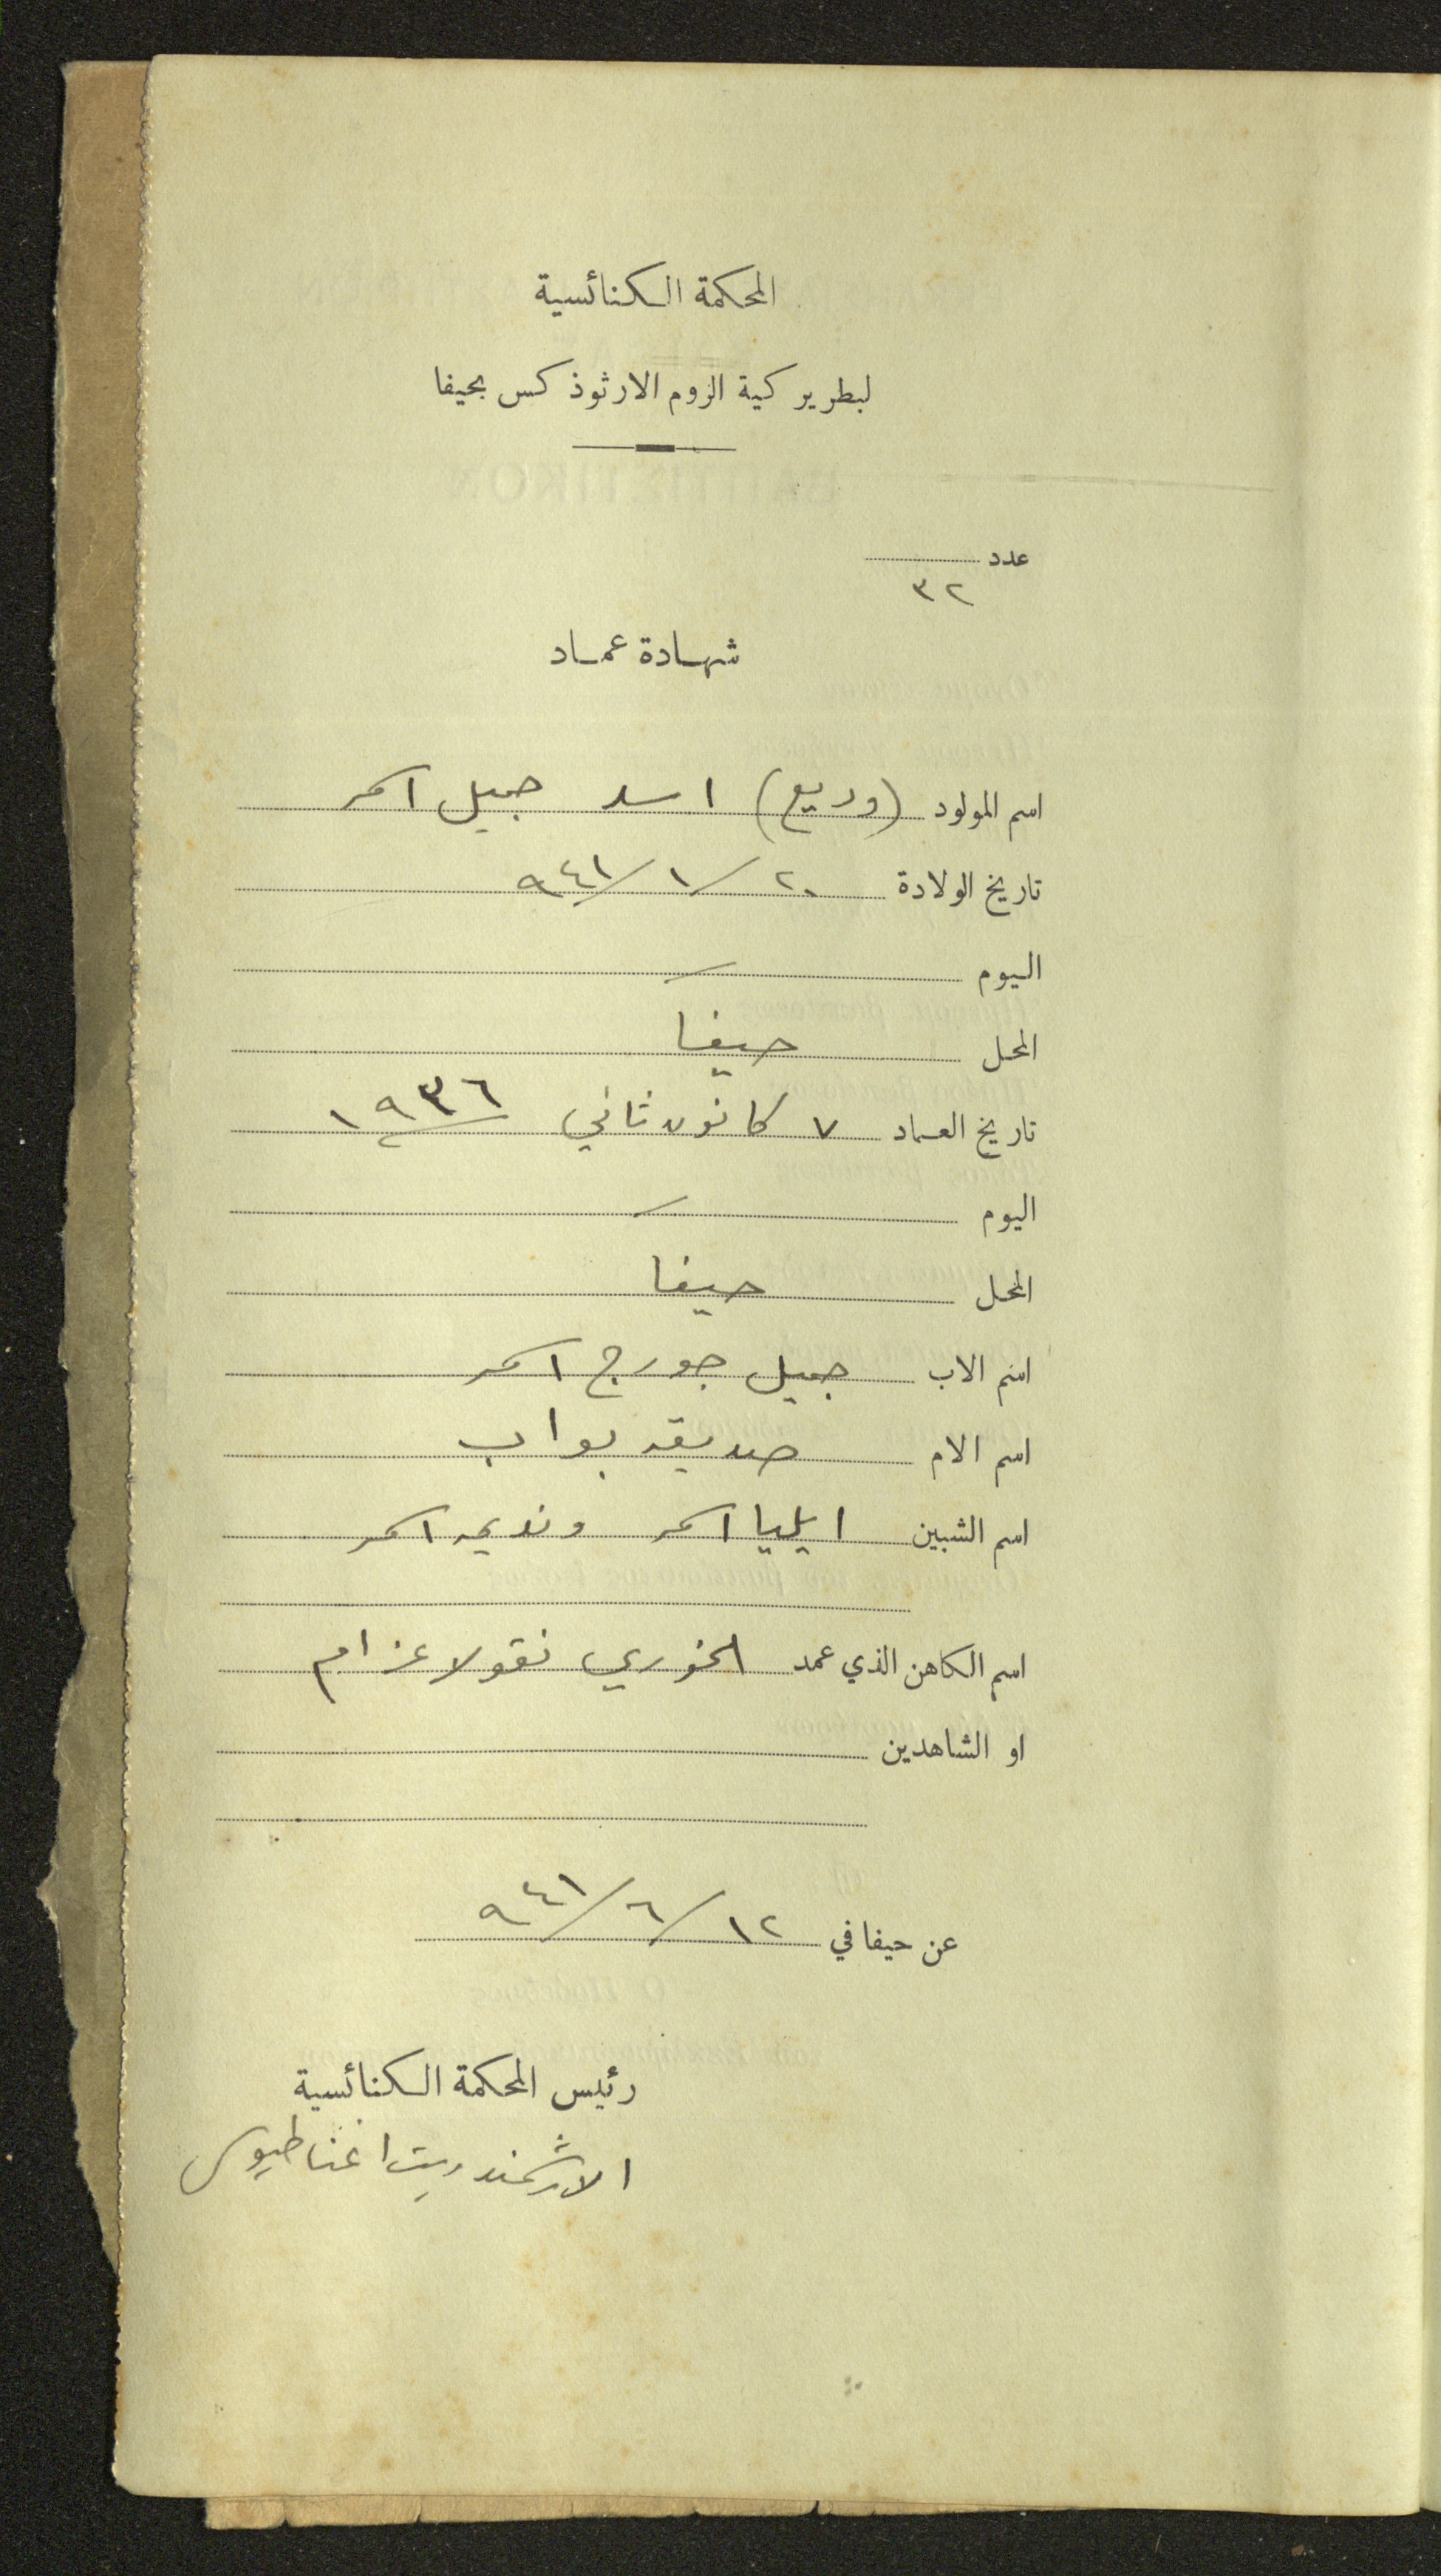 المحكمة الكنائسية
لبطريركية الروم الارثوذكس بحيفا
عدد
٣٢
شهادة عماد
اسم المولود (وديع) اسد جميل اسمر
تاريخ الولادة ٢٠/١/٩٤١
اليوم
المحل حيفا
تاريخ العماد ٧ كانون ثاني ١٩٣٦
اليوم
المحل حيفا
اسم الاب جميل جورج اسمر
اسم الام صديقه بواب
اسم الشبين ايليا اسمر ونديمه اسمر
اسم الكاهن الذي عمد الخوري نقولا عزام
او الشاهدين
عن حيفا في ١٢/٦/٩٤١
رئيس المحكمة الكنائسية
الارشمندريت اغناطيوس